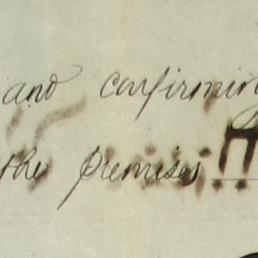 and confirming
the premises